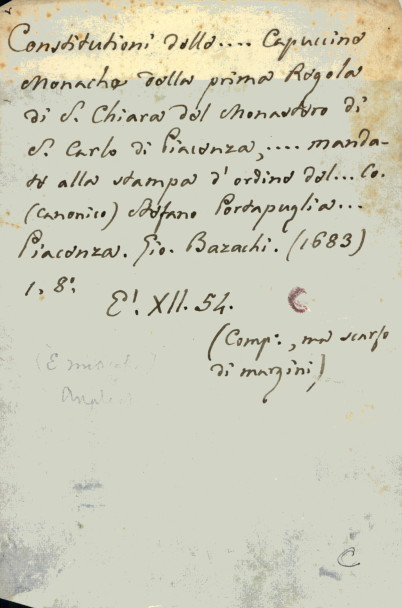 Constitutioni delle.... Capuccine
Monache della prima Regola
di S. Chiara del Monastero di
S. Carlo di Piacenza, .... manda-
te alla stampa d'ordine del... Co.
(canonico) Stefano Portapuglia...
Piacenza. Gio. Bazachi. (1683)
1, 8°.
E'. XII. 54.
(Comp:, ma scarso
di margini)
C